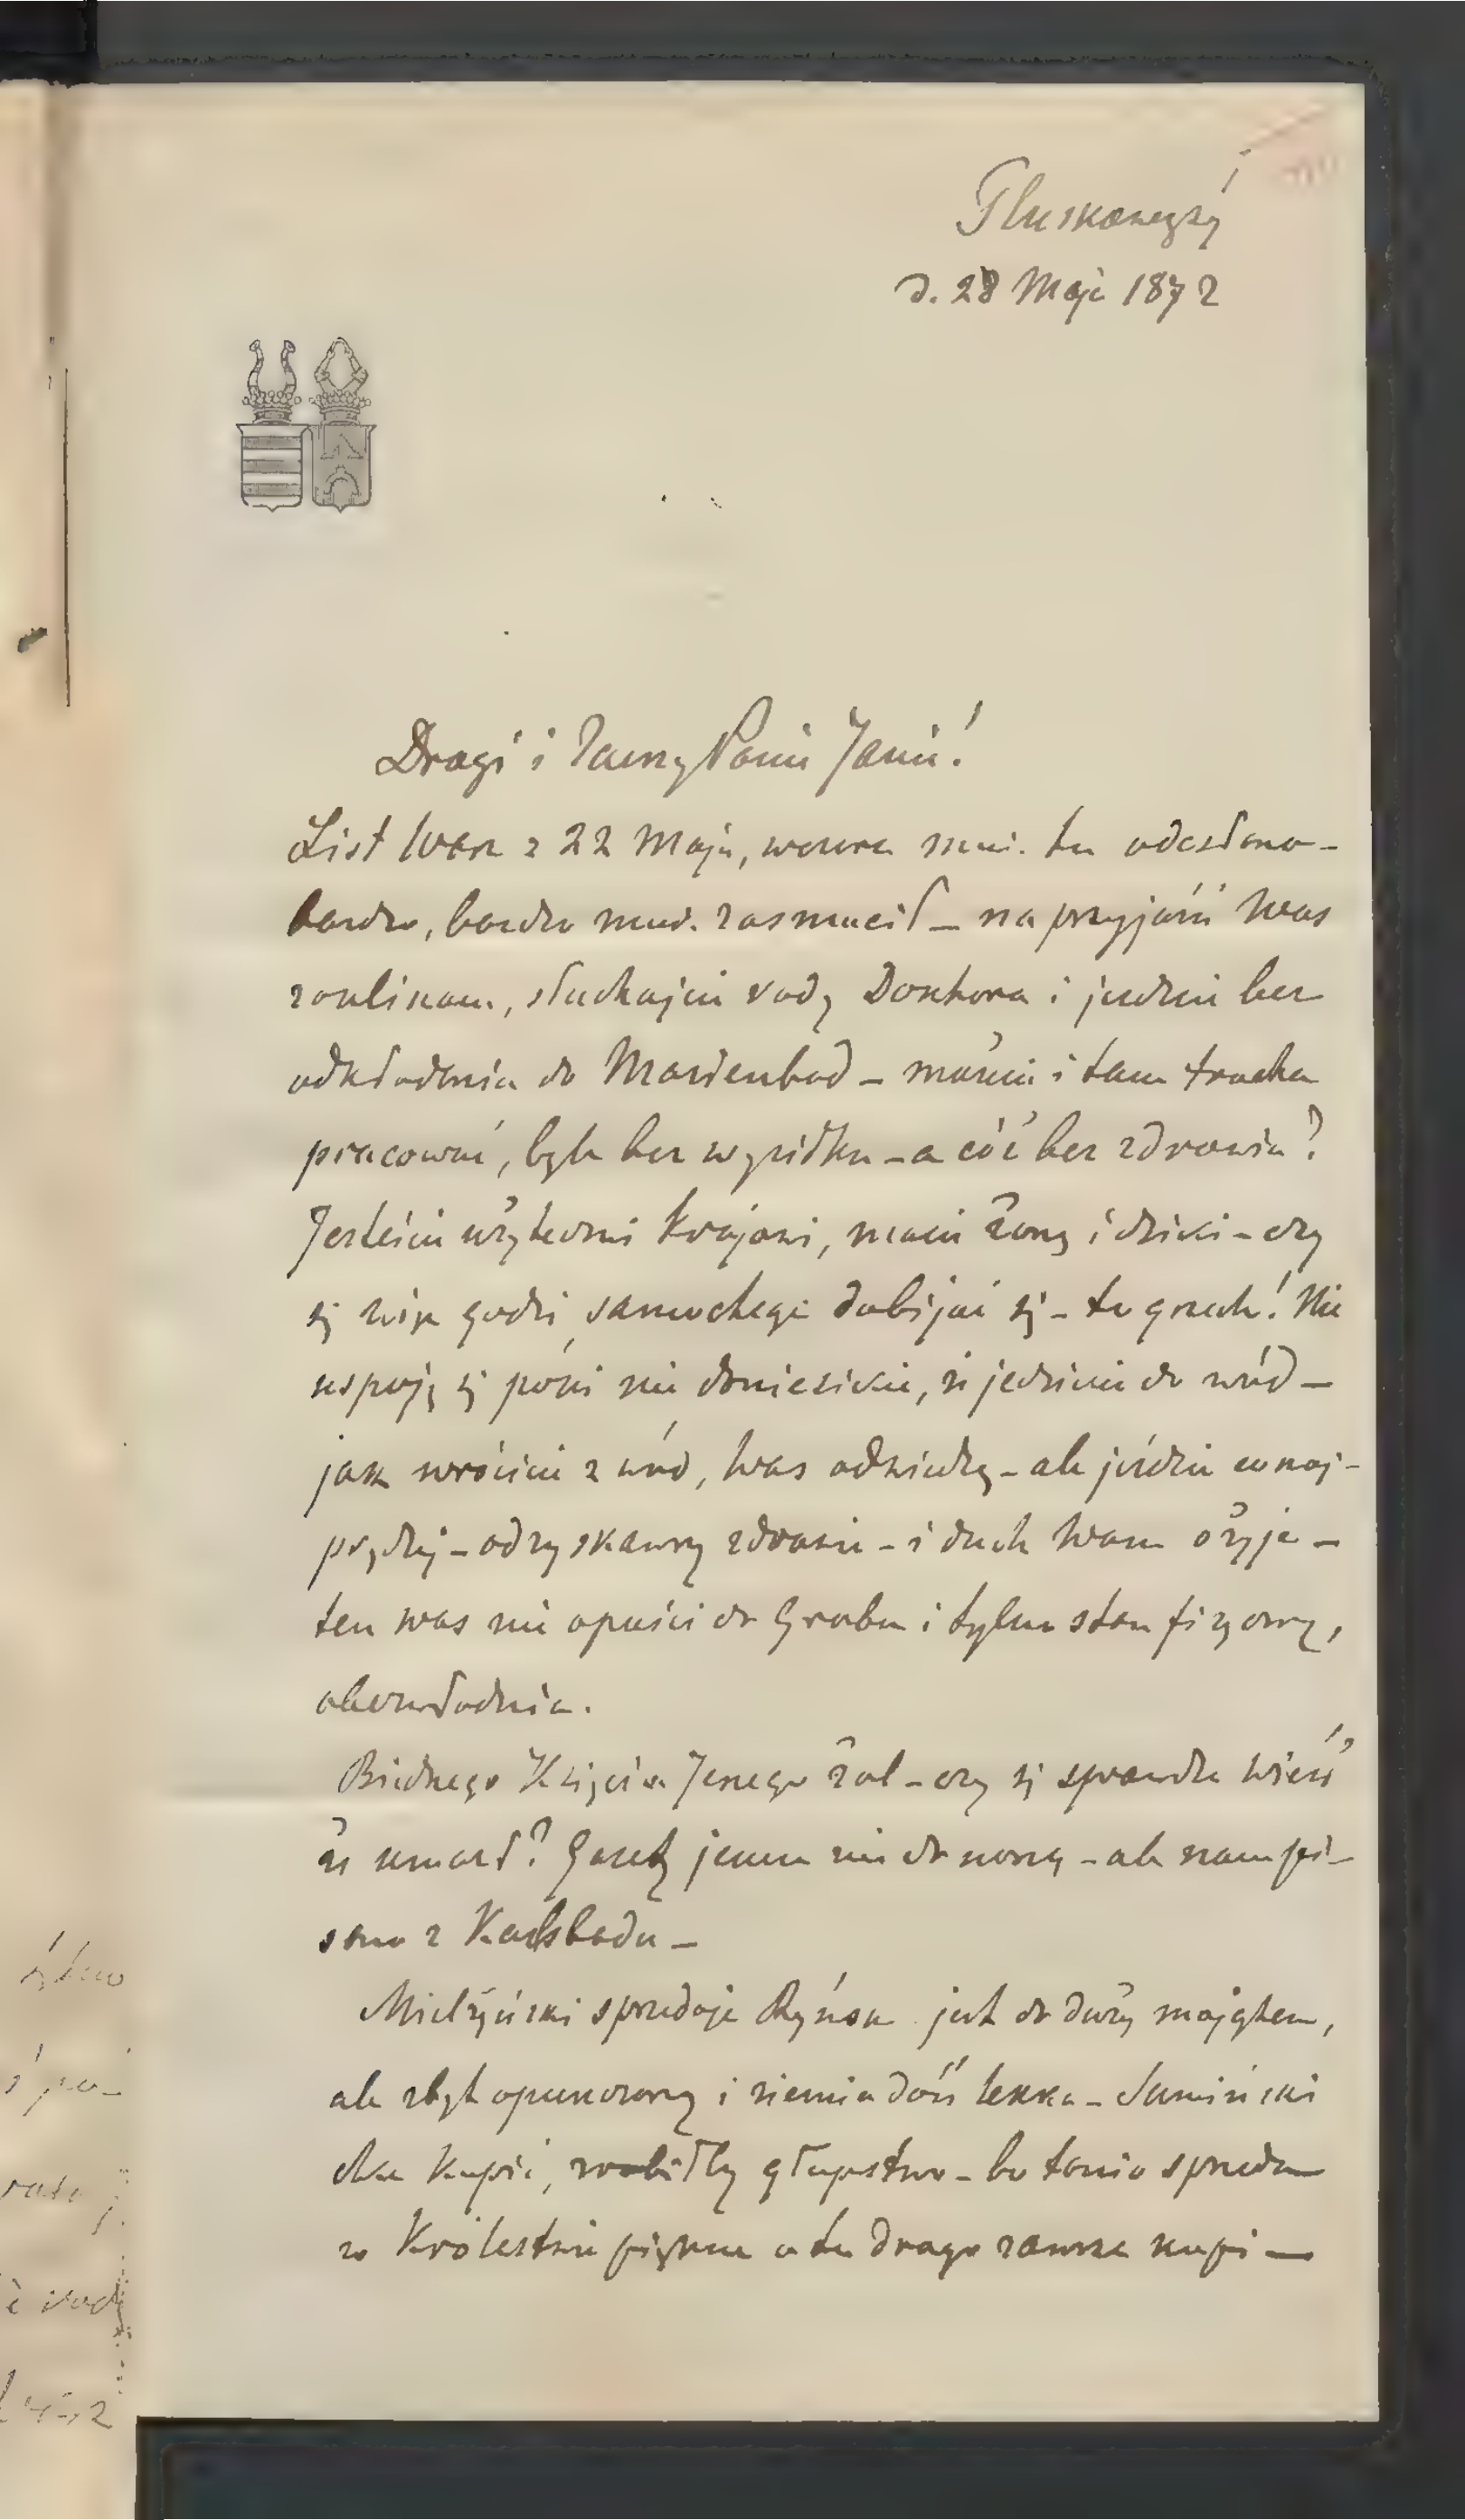 d. 28 Maja 1872
Drogi i Zacny Panie Janie!
List Wasz z 22 Maja, wczora mnie tu odesłano –
bardzo, bardzo mnie zasmucił – na przyjaźń Was
zaklinam, słuchajcie rady Doktora i jedźcie bez
odkładania do Marienbad – możecie i tam trocha
pracować, byle bez wysiłku – a cóż bez zdrowia?
Jesteście użyteczni Krajowi, macie żonę i dzieci – czy
się więc godzi samochcąc dobijać się – to grzech! Nie
uspoję się póki nie doniesiecie, że jedziecie do wód –
jak wrócicie z wód, Was odwiedzę – ale jedźcie co naj-
prędzej – odzyskawszy zdrowie – i duch Wam ożyje –
ten was nie opuści do Grobu i tylko stan fizyczny,
obezwładnia.
Biednego Księcia Jerzego żal – czy się sprawdza wieść
że umarł? Gazety jeszcze nie donoszą – ale nam pi-
sano z Karlsbadu –
Mielżyński sprzedaje Ryńsk jest to duży majątek,
ale zbyt opuszczony i ziemia dość lekka – Sumiński
chce kupić, zrobiłby głupstwo – bo tanio sprzeda
w Królestwie piękne a tu drogo zawsze kupi –